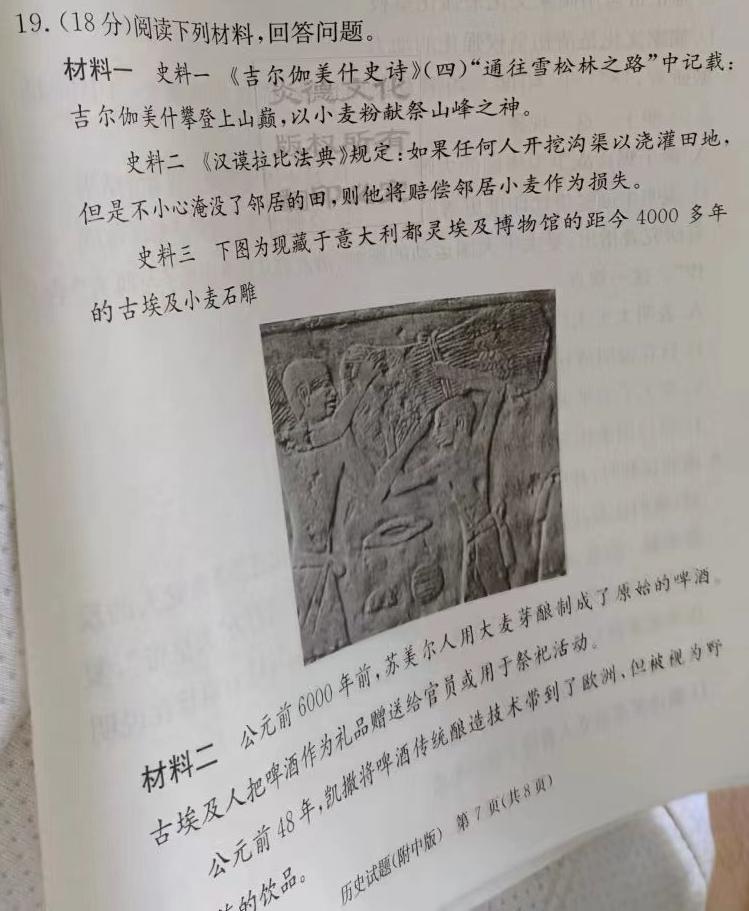 19.(18分)阅读下列材料,回答问题。
材料一 史料一 《吉尔伽美什史诗》(四)“通往雪松林之路”中记载:
吉尔伽美什攀登上山巅,以小麦粉献祭山峰之神。
史料二 《汉谟拉比法典》规定:如果任何人开挖沟渠以浇灌田地,
但是不小心淹没了邻居的田,则他将赔偿邻居小麦作为损失。
史料三 下图为现藏于意大利都灵埃及博物馆的距今4000多年
的古埃及小麦石雕
炎德文化
版权所有
材料二 公元前6000年前,苏美尔人用大麦芽酿制成了原始的啤酒。
古埃及人把啤酒作为礼品赠送给官员或用于祭祀活动。
公元前48年,凯撒将啤酒传统酿造技术带到了欧洲、但被视为野
的饮品。
历史试题(附中版) 第7页(共8页)